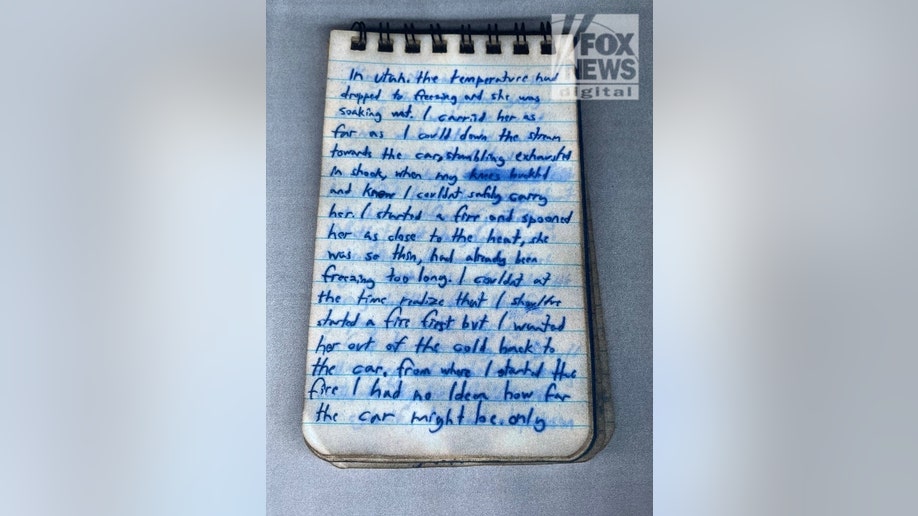 FOX
NEWS
digital
In Utah. the temperature had
dropped to freezing and she was
soaking wet. I carried her as
far as I could down the stream
towards the car, stumbling exhausted
in shock, when my knees buckled
and knew I couldnt safely carry
her. I started a fire and spooned
her as close to the heat, she
was so thin, had already been
freezing too long. I couldnt at
the time realize that I should've
started a fire first but I wanted
her out of the cold back to
the car. from where I started the
fire I had no Idea how far
the car might be. only